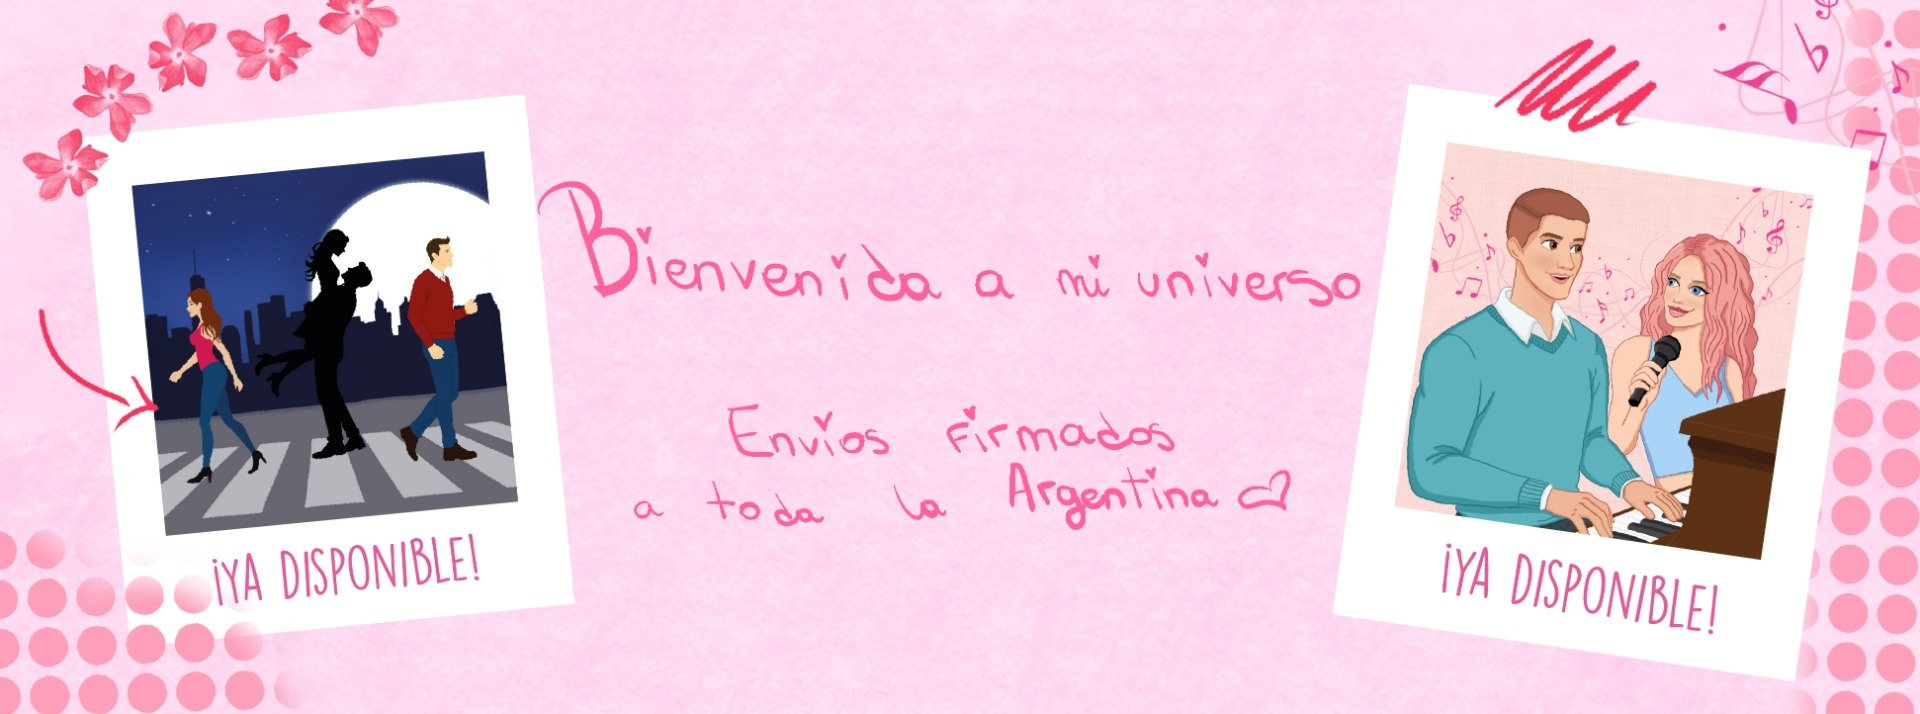 Bienvenida a mi universo
Envios firmados
a toda la Argentina
¡YA DISPONIBLE!
¡YA DISPONIBLE!